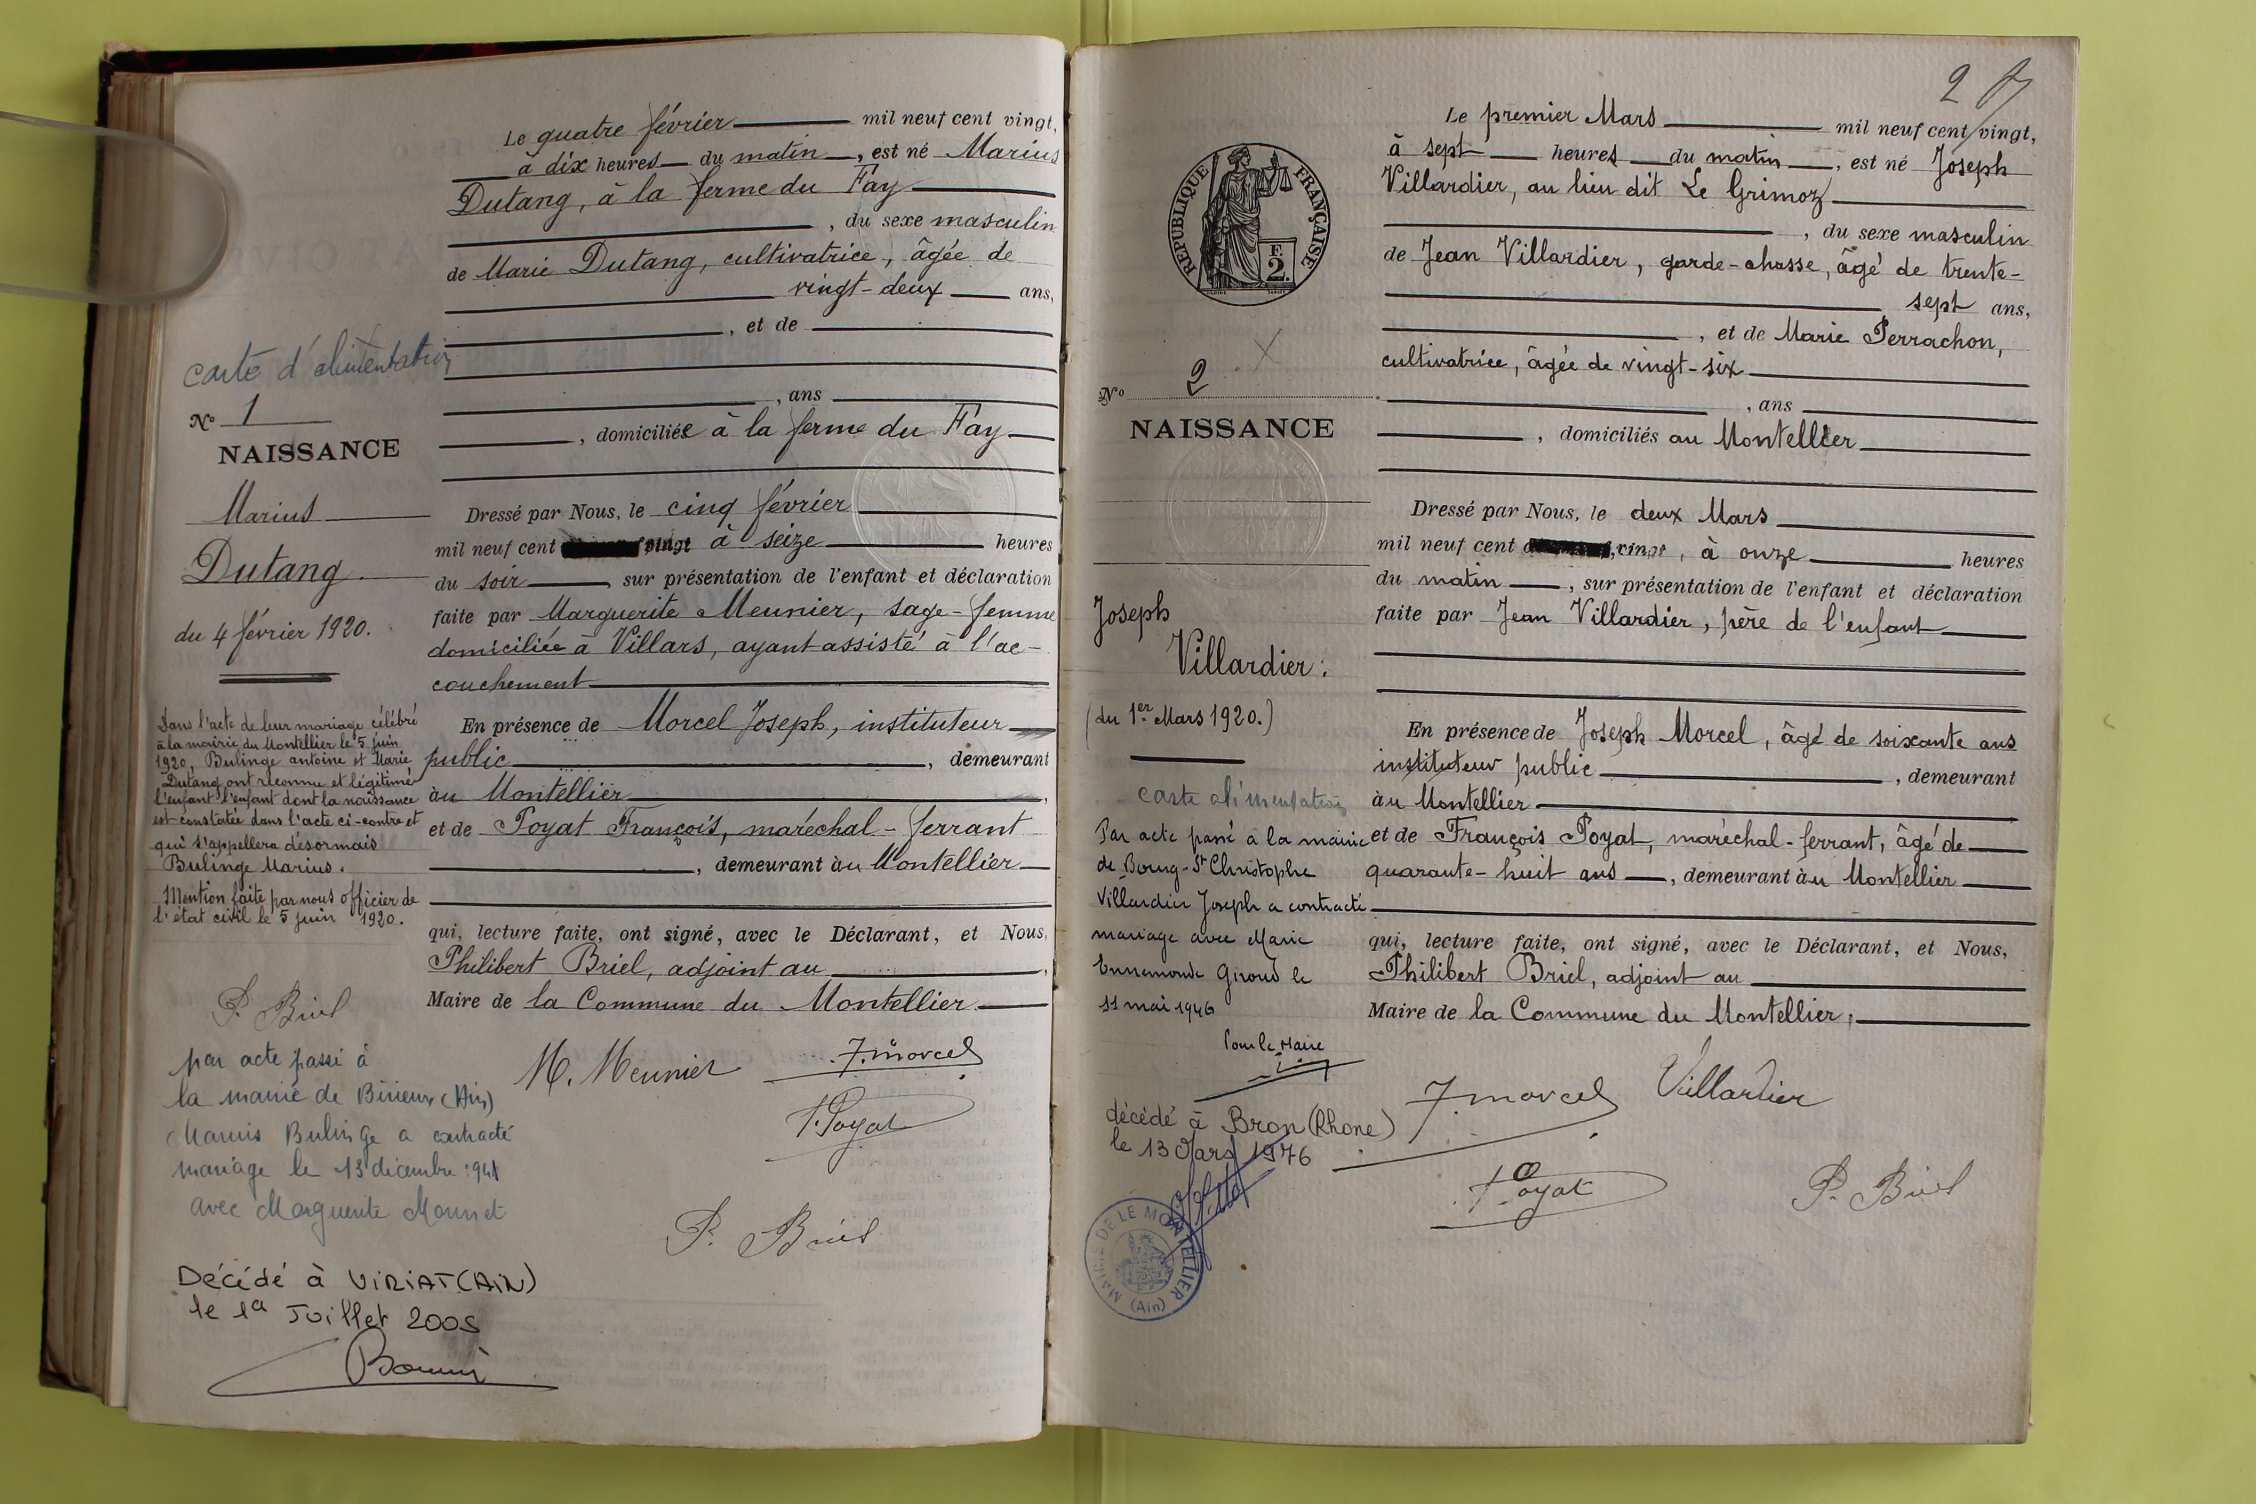 Le quatre février mil neuf cent vingt,
à dix heures du matin, est né Marius
Dutang, à la ferme du Fay
, du sexe masculin
de Marie Dutang, cultivatrice, âgée de
vingt-deux ans,
, et de
, ans
, domiciliée à la ferme du Fay
Dressé par Nous, le cinq février
mil neuf cent vingt à seize heures
du soir, sur présentation de l'enfant et déclaration
faite par Marguerite Meunier, sage-femme
domiciliée à Villars, ayant assisté à l'ac-
couchement
En présence de Morcel Joseph, instituteur
public, demeurant
au Montellier,
et de Poyat François, maréchal-ferrant
, demeurant à au Montellier
qui, lecture faite, ont signé, avec le Déclarant, et Nous,
Philibert Briel, adjoint au,
Maire de la Commune du Montellier
M. Meunier
J. Morcel
F. Poyat
P. Briel
carte d'alimentation
N° 1
NAISSANCE
Marius
Dutang
du 4 février 1920.
Dans l'acte de leur mariage célébré
à la mairie du Montellier le 5 juin
1920, Bulinge antoine et Marie
Dutang ont reconnu et légitimé
l'enfant l'enfant dont la naissance
est constatée dans l'acte ci-contre et
qui s'appellera désormais
Bulinge Marius.
Mention faite par nous officier de
l'état civil le 5 juin 1920.
P. Briel
par acte passé à
la mairie de Birieux (Ain)
Marius Bulinge a contracté
mariage le 13 décembre 1941
avec Marguerite Monnet
Décédé à VIRIAT (AIN)
le Juillet 2005
2
RÉPUBLIQUE FRANÇAISE
F.
2.
N° 2
NAISSANCE
Joseph
Villardier.
(du 1er Mars 1920.)
carte alimentation
Par acte passé à la mairie
de Bourg-St Christophe
Villardier Joseph a contracté
mariage avec Marie
Ennemonde Giroud le
11 mai 1946
Pour le Maire
décédé à Bron (Rhone)
le 13 Mars 1976
MAIRIE DE LE MONTELLIER
(Ain)
Le premier Mars mil neuf cent vingt,
à sept heures du matin, est né Joseph
Villardier, au lieu dit Le Grimoz
, du sexe masculin
de Jean Villardier, garde-chasse, âgé de trente-
sept ans,
, et de Marie Perrachon,
cultivatrice, âgée de vingt-six
, ans
, domiciliés au Montellier
Dressé par Nous, le deux Mars
mil neuf cent vingt, à onze heures
du matin, sur présentation de l'enfant et déclaration
faite par Jean Villardier, père de l'enfant
En présence de Joseph Morcel, âgé de soixante ans
instituteur public, demeurant
à au Montellier
et de François Poyat, maréchal-ferrant, âgé de
quarante-huit ans, demeurant à au Montellier
qui, lecture faite, ont signé, avec le Déclarant, et Nous,
Philibert Briel, adjoint au
Maire de la Commune du Montellier,
J. Morcel
Villardier
F. Poyat
P. Briel